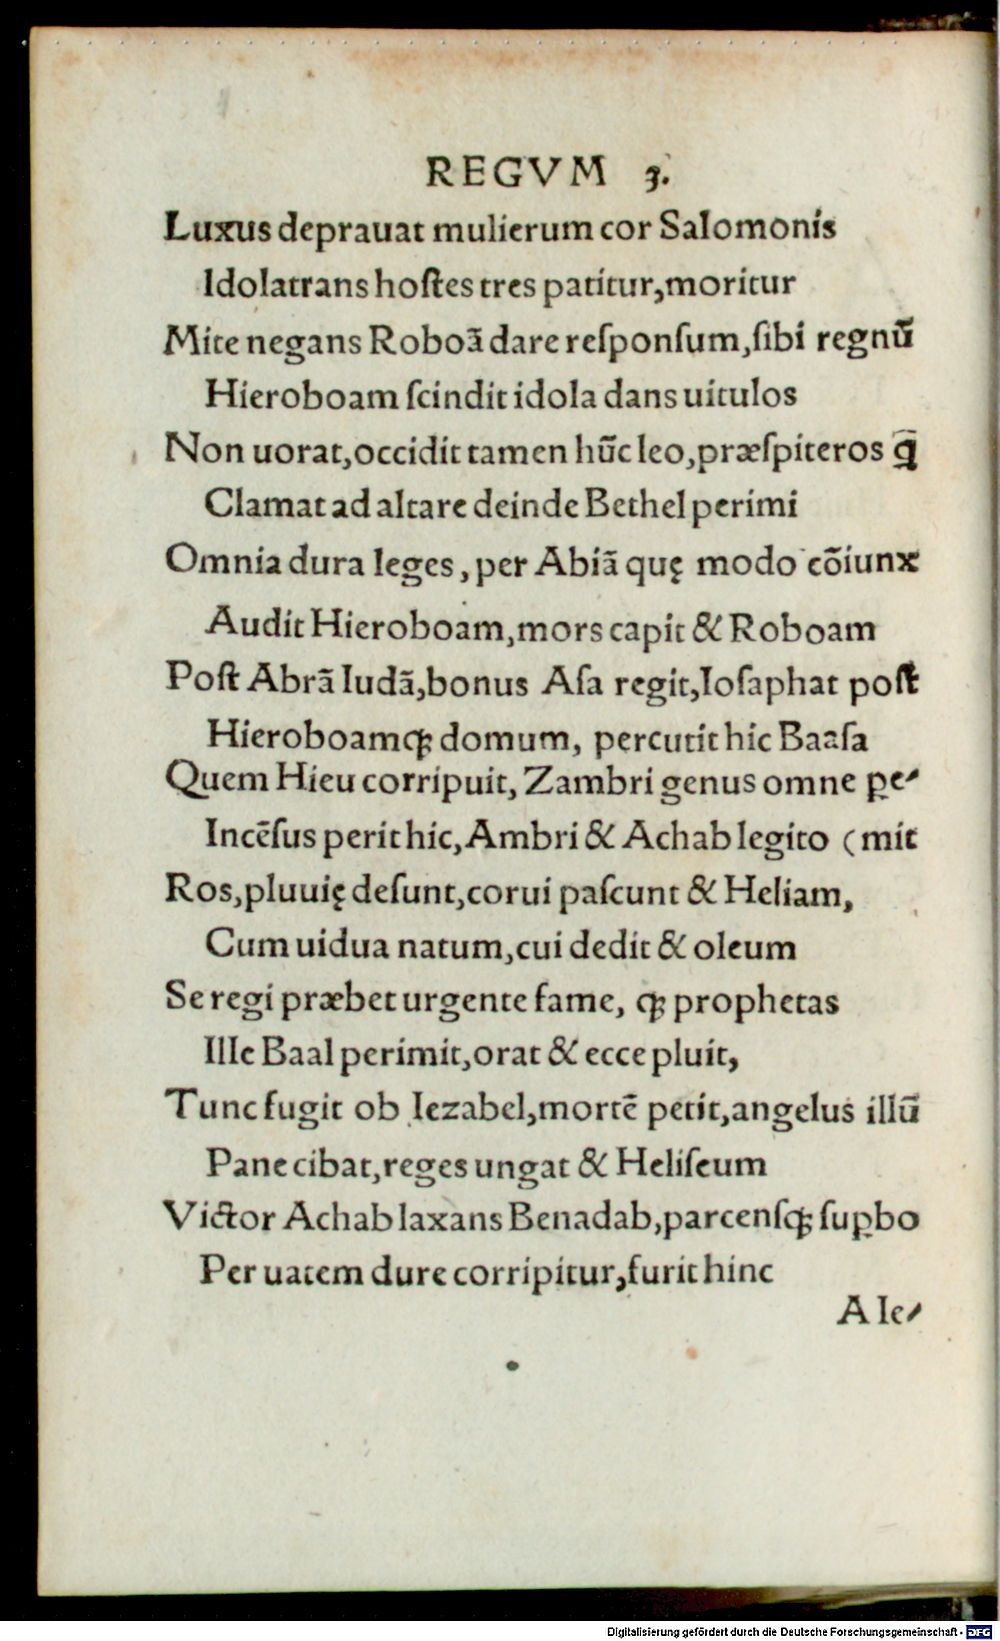 REGVM 3.
Luxus deprauat mulierum cor Salomonis
Idolatrans hoſtes tres patitur,moritur
Mite negans Roboã dare reſponſum,ſibi regnũ
Hieroboam ſcindit idola dans uitulos
Non uorat,occidit tamen hũc leo,præſpiteros q̃
Clamat ad altare deinde Bethel perimi
Omnia dura leges, per Abiã quę modo cõiunx
Audit Hieroboam,mors capit & Roboam
Poſt Abrã Iudã,bonus Aſa regit,Ioſaphat poſt
Hieroboamqꝫ domum, percutit hic Baaſa
Quem Hieu corripuit, Zambri genus omne ꝑe⸗
Incẽſus perit hic,Ambri & Achab legito (mit
Ros,pluuię deſunt,corui paſcunt & Heliam,
Cum uidua natum,cui dedit & oleum
Se regi præbet urgente fame, qꝫ prophetas
Ille Baal perimit,orat & ecce pluit,
Tunc fugit ob Iezabel,mortẽ petit,angelus illũ
Pane cibat,reges ungat & Heliſeum
Victor Achab laxans Benadab,parcenſqꝫ ſuꝑbo
Per uatem dure corripitur,furit hinc
A Ie⸗
Digitalisierung gefördert durch die Deutsche Forschungsgemeinschaft - DFG